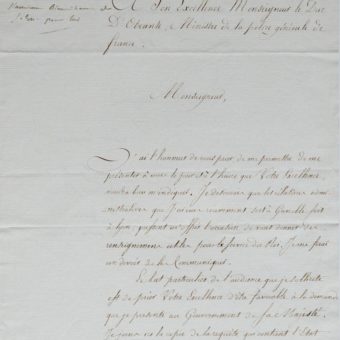 A Son Excellence Monseigneur le Duc
D'Otrante, Ministre de la police générale de
france.
Monseigneur,
J'ai l'honneur de vous prier de me permettre de me
présenter à vous le jour et à l'heure que Votre Excellence
voudra bien m'indiquer. Je désire que les relations admi-
nistratives que J'ai eues soit à Grenoble soit
à Lyon, puissent m'offrir l'occasion de vous donner des
renseignemens utiles pour le service du Roi, Je me ferai
un devoir de les Communiquer.
Le but particulier de l'audience que je sollicite
est de prier Votre Excellence d'être favorable à la demande
que je présente au Gouvernement de Sa Majesté.
Je joins ici la copie de la requête qui contient l'Etat